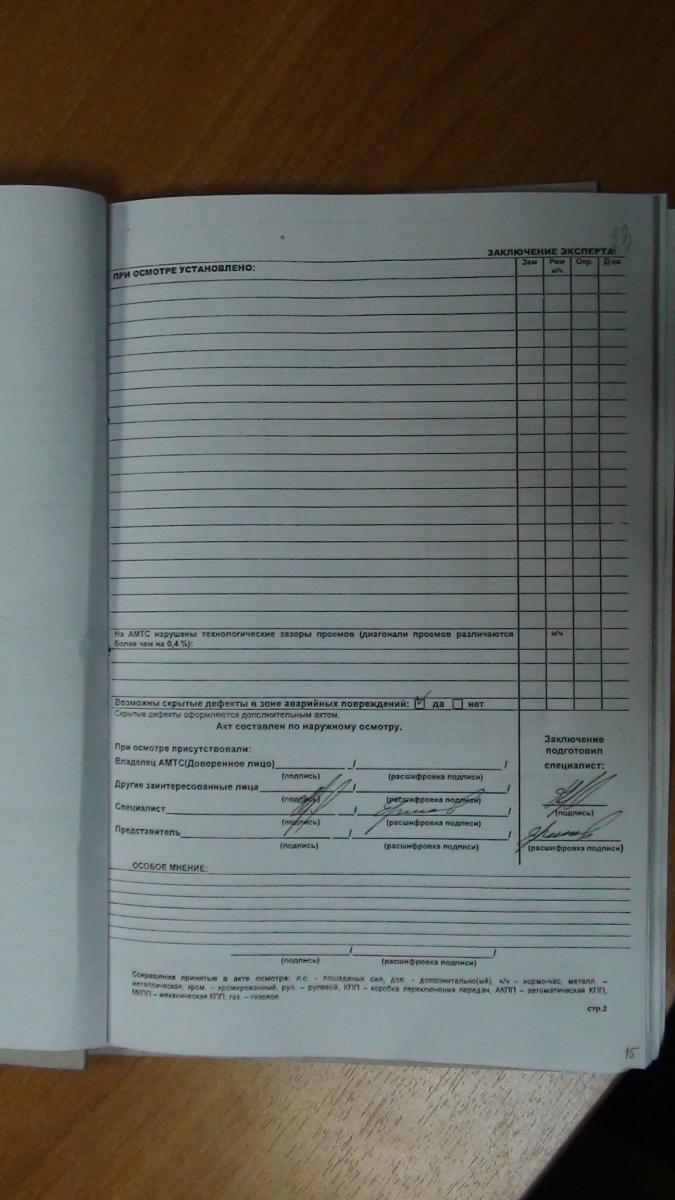 ЗАКЛЮЧЕНИЕ ЭКСПЕРТА
ПРИ ОСМОТРЕ УСТАНОВЛЕНО:
Зам Рем Окр. Д-ка
н/ч
На АМТС нарушены технологические зазоры проемов (диагонали проемов различаются н/ч
более чем на 0,4 %):
Возможны скрытые дефекты в зоне аварийных повреждений: да нет
Скрытые дефекты оформляются дополнительным актом.
Акт составлен по наружному осмотру.
При осмотре присутствовали:
Владелец АМТС(Доверенное лицо) / /
(подпись) (расшифровка подписи)
Другие заинтересованные лица / /
(подпись) (расшифровка подписи)
Специалист / /
(подпись) (расшифровка подписи)
Представитель / /
(подпись) (расшифровка подписи)
Заключение
подготовил
специалист:
(подпись)
(расшифровка подписи)
ОСОБОЕ МНЕНИЕ:
/ /
(подпись) (расшифровка подписи)
Сокращения принятые в акте осмотра: л.с. - лошадиных сил, доп. - дополнительно(ый), н/ч - нормочас, металл. –
металлическая, хром. - хромированный, рул. – рулевой, КПП – коробка переключения передач, АКПП – автоматическая КПП,
МКПП – механическая КПП, газ. – газовое.
стр.2
15